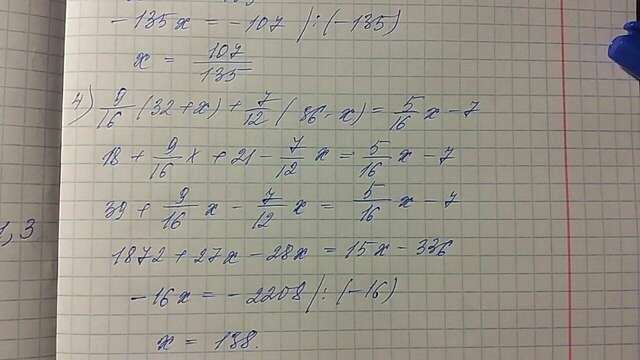 -135x = -107 /:(-135)
x = 107/135
4) 9/16 (32+x) + 7/12 (36-x) = 5/16 x - 7
18 + 9/16 x + 21 - 7/12 x = 5/16 x - 7
39 + 9/16 x - 7/12 x = 5/16 x - 7
1872 + 27x - 28x = 15x - 336
-16x = -2208 /:(-16)
x = 138.
1,3